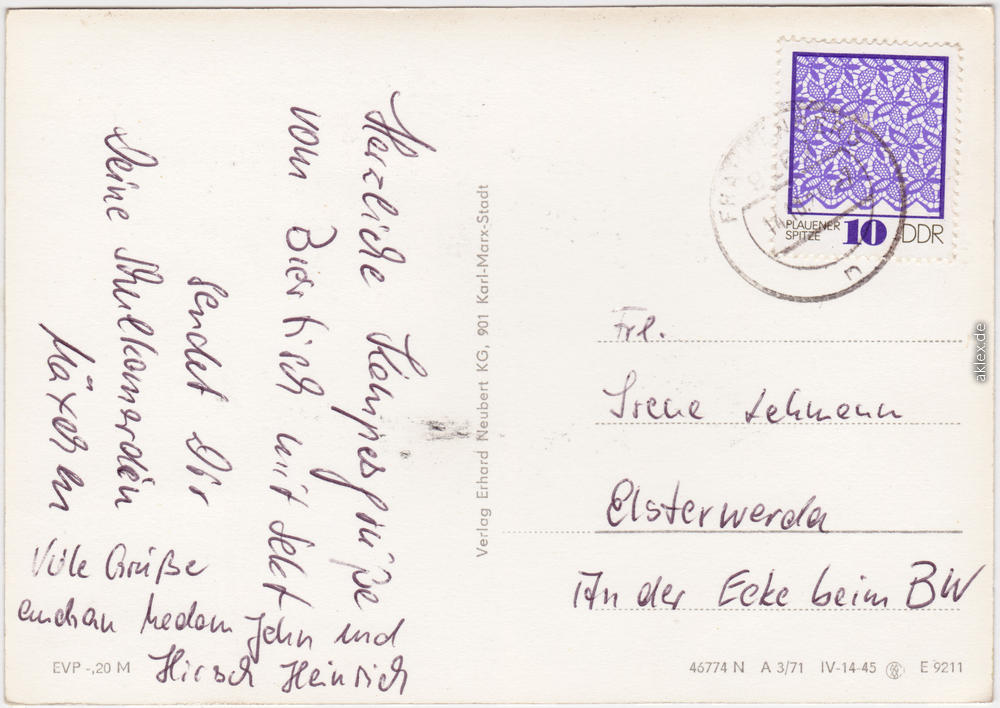 Herzliche Kampesgrüße
vom Biertisch mit Sekt
sendet Dir
Deine Schulkamerdin
Mäxchen
Viele Grüße
auch an Madam John und
Hirsch Heinrich
EVP -,20 M
Verlag Erhard Neubert KG, 901 Karl-Marx-Stadt
PLAUENER
SPITZE
10
DDR
Frl.
Irene Lehmann
Elsterwerda
An der Ecke beim BW
46774 N A 3/71 IV-14-45 E 9211
aklex.de